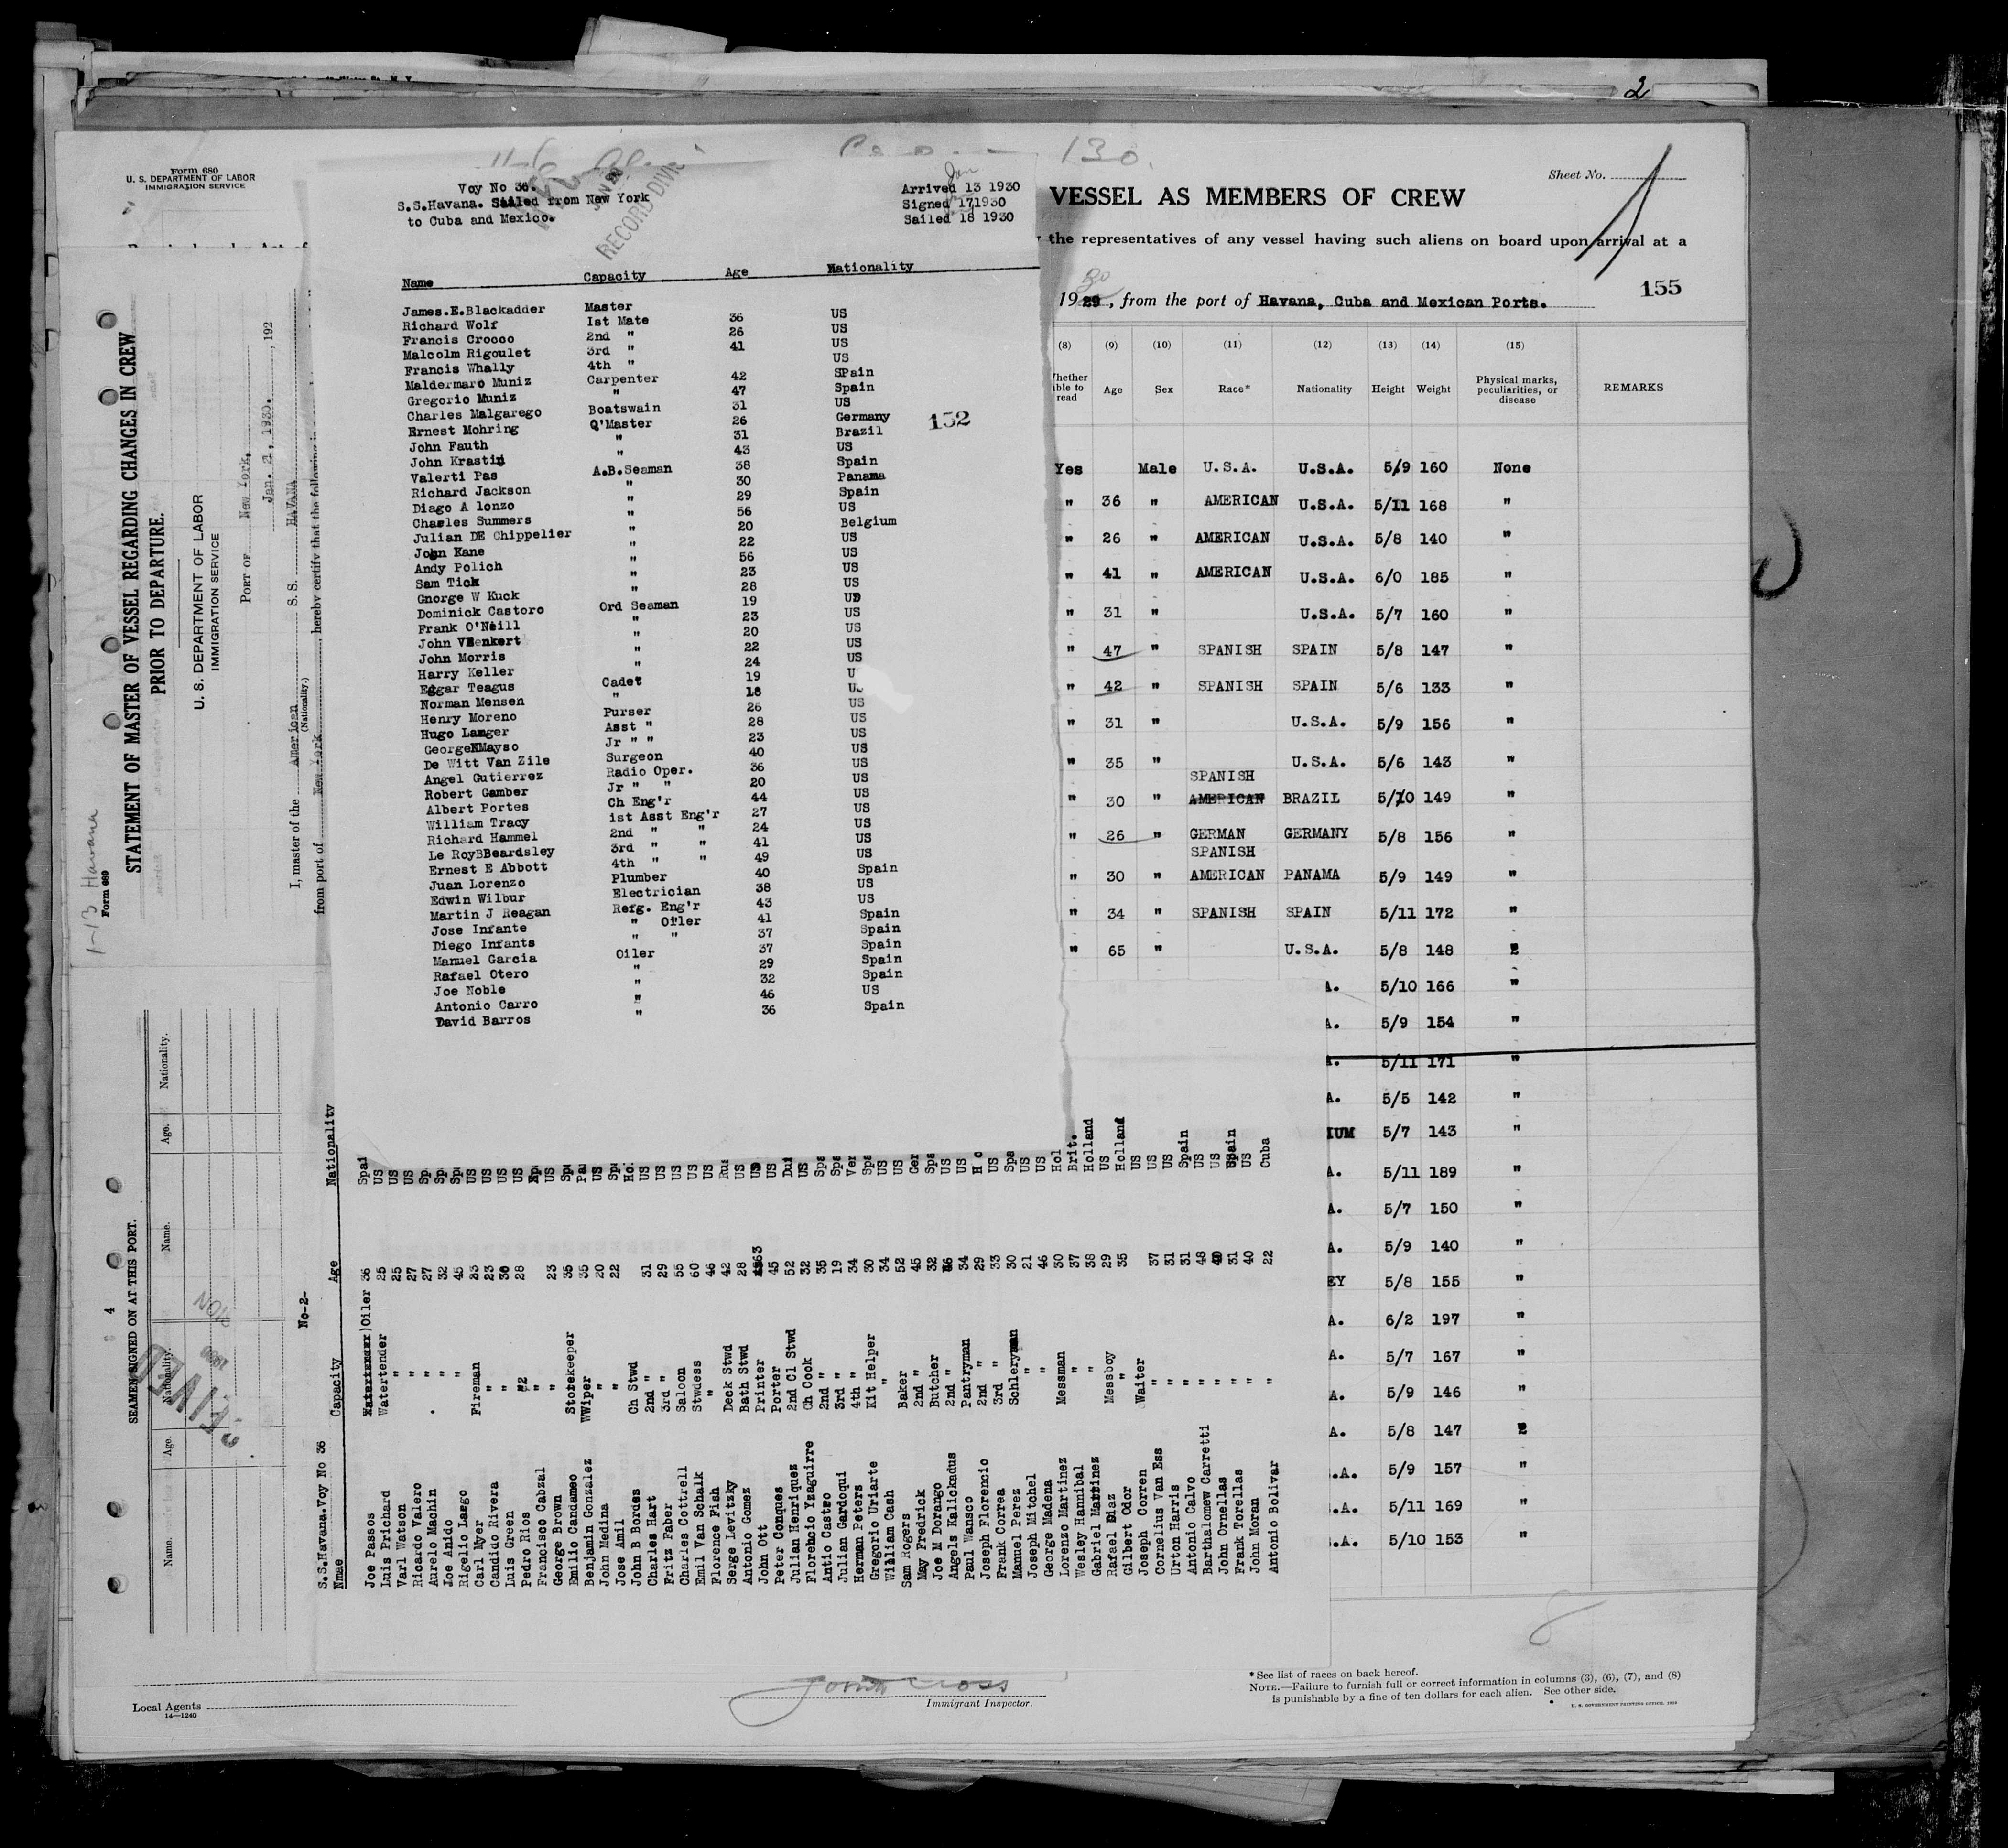 2
Form 680
U. S. DEPARTMENT OF LABOR
IMMIGRATION SERVICE
Voy No 36.
S.S.Havana. Sailed from New York
to Cuba and Mexico.
RECORD DIV
Arrived Jan 13 1930
Signed 171930
Sailed 18 1930
130.
Name Capacity Age Nationality
James.E.Blackadder Master
Richard Wolf 1st Mate 36 US
Francis Crocco 2nd " 26 US
Malcolm Rigoulet 3rd " 41 US
Francis Whally 4th " US
Maldermaro Muniz Carpenter 42 SPain
Gregorio Muniz " 47 Spain
Charles Malgarego Boatswain 31 US
Ernest Mohring Q'Master 26 Germany
John Fauth " 31 Brazil
John Krastin " 43 US
Valerti Pas A.B.Seaman 38 Spain
Richard Jackson " 30 Panama
Diago A lonzo " 29 Spain
Charles Summers " 56 US
Julian DE Chippelier " 20 Belgium
John Kane " 22 US
Andy Polich " 56 US
Sam Tick " 23 US
Gnorge W Kuck " 28 US
Dominick Castoro Ord Seaman 19 US
Frank O'Neill " 23 US
John Wenkert " 20 US
John Morris " 22 US
Harry Keller " 24 US
Edgar Teagus Cadet 19 U
Norman Mensen " 18 U
Henry Moreno Purser 26 US
Hugo Langer Asst " 28 US
George Mayso Jr " " 23 US
De Witt Van Zile Surgeon 40 US
Angel Gutierrez Radio Oper. 36 US
Robert Gamber Jr " " 20 US
Albert Portes Ch Eng'r 44 US
William Tracy 1st Asst Eng'r 27 US
Richard Hammel 2nd " " 24 US
Le RoyBBeardsley 3rd " " 41 US
Ernest E Abbott 4th " " 49 US
Juan Lorenzo Plumber 40 Spain
Edwin Wilbur Electrician 38 US
Martin J Reagan Refg. Eng'r 43 US
Jose Infante " Oiler 41 Spain
Diego Infants " " 37 Spain
Manuel Garcia Oiler 37 Spain
Rafael Otero " 29 Spain
Joe Noble " 32 Spain
Antonio Carro " 46 US
David Barros " 36 Spain
152
VESSEL AS MEMBERS OF CREW
Sheet No.
the representatives of any vessel having such aliens on board upon arrival at a
1929 30, from the port of Havana, Cuba and Mexican Ports.
155
(8) (9) (10) (11) (12) (13) (14) (15)
Whether able to read Age Sex Race* Nationality Height Weight Physical marks, peculiarities, or disease REMARKS
Yes Male U.S.A. U.S.A. 5/9 160 None
" 36 " AMERICAN U.S.A. 5/11 168 "
" 26 " AMERICAN U.S.A. 5/8 140 "
" 41 " AMERICAN U.S.A. 6/0 185 "
" 31 " U.S.A. 5/7 160 "
" 47 " SPANISH SPAIN 5/8 147 "
" 42 " SPANISH SPAIN 5/6 133 "
" 31 " U.S.A. 5/9 156 "
" 35 " U.S.A. 5/6 143 "
SPANISH
" 30 " AMERICAN BRAZIL 5/10 149 "
" 26 " GERMAN GERMANY 5/8 156 "
SPANISH
" 30 " AMERICAN PANAMA 5/9 149 "
" 34 " SPANISH SPAIN 5/11 172 "
" 65 " U.S.A. 5/8 148 "
A. 5/10 166 "
A. 5/9 154 "
A. 5/11 171 "
A. 5/5 142 "
IUM 5/7 143 "
A. 5/11 189 "
A. 5/7 150 "
A. 5/9 140 "
EY 5/8 155 "
A. 6/2 197 "
A. 5/7 167 "
A. 5/9 146 "
A. 5/8 147 "
.A. 5/9 157 "
.A. 5/11 169 "
.A. 5/10 153 "
8
*See list of races on back hereof.
NOTE.—Failure to furnish full or correct information in columns (3), (6), (7), and (8)
is punishable by a fine of ten dollars for each alien. See other side.
U. S. GOVERNMENT PRINTING OFFICE
Immigrant Inspector.
Local Agents
14—1240
1-13 Havana
Form 689
STATEMENT OF MASTER OF VESSEL REGARDING CHANGES IN CREW
PRIOR TO DEPARTURE.
U. S. DEPARTMENT OF LABOR
IMMIGRATION SERVICE
PORT OF New York,
Jan. 21, 1930. , 192
I, master of the American S. S. HAVANA
(Nationality.)
from port of New York, hereby certify that the following
4
SEAMEN SIGNED ON AT THIS PORT.
Name. Age. Nationality. Name. Age. Nationality.
No-2-
S.S.Havana.Voy No 36
Nmae Capacity Age Nationality
Joe Passos Oiler 36 Spai
Luis Prichard Watertender 25 US
Varl Watson " 25 US
Ricardo Valero " 27 US
Aurelo Machin " 27 Sp
Joe Anido " 32 Sp
Rigelio Largo " 45 Sp
Carl Myer Fireman 23 US
Candido Rivera " 23 US
Luis Green " 30 US
Pedro Rios " 28 US
Francisco Cabzal " Sp
George Brown " 23 US
Emilio Candameo Storekeeper 35 Sp
Benjamin Gonzalez WWiper 35 Pa
John Medina " 20 US
Jose Amil " 22 Sp
John B Bordes Ch Stwd Ho
Charles Hart 2nd " 31 US
Fritz Faber 3rd " 29 US
Charles Cottrell Saloon 55 US
Emil Van Schalk Stwdess 60 US
Florence Fish " 46 US
Serge Levitzky Deck Stwd 42 Rus
Antonio Gomez Bath Stwd 28 US
John Ott Printer 63 US
Peter Conques Porter 45 US
Julian Henriquez 2nd Cl Stwd 52 Du
Florehcio Yzaguirre Ch Cook 32 US
Antio Castro 2nd " 35 Spa
Julian Gardoqui 3rd " 19 Spa
Herman Peters 4th " 34 Ver
Gregorio Uriarte Kit Helper 30 Spa
William Cash " 34 US
Sam Rogers Baker 52 US
May Fredrick 2nd " 45 Ger
Joe M Dorango Butcher 32 Spa
Angels Kalickadus 2nd " 36 US
Paul Wansco Pantryman 34 US
Joseph Florencio 2nd " 29 H
Frank Correa 3rd " 33 US
Manuel Perez Schleryman 30 Spa
Joseph Mitchel " 21 US
George Madena " 46 US
Lorenzo Martinez Messman 30 Hol
Wesley Hannibal " 37 Brit.
Gabriel Martinez " 38 Holland
Rafael Diaz Messboy 29 US
Gilbert Odor " 35 Holland
Joseph Corren Waiter US
Cornelius Van Ess " 37 US
Urton Harris " 31 US
Antonio Calvo " 31 Spain
Barthalomew Carretti " 48 US
John Ornellas " 40 US
Frank Torellas " 31 Spain
John Moran " 40 US
Antonio Bolivar " 22 Cuba